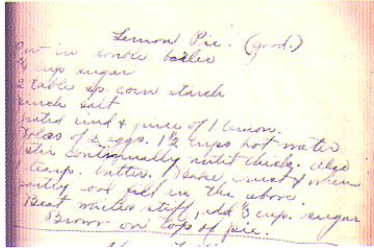 Lemon Pie. (good.)
Put in double boiler
3/4 cup sugar
2 table sp. corn starch
pinch salt
grated rind & juice of 1 lemon.
Yolks of 2 eggs. 1 1/2 cups hot water
Stir continually until thick. Also
1 teasp. butter. Bake crust & when
partly cool fill in the above.
Beat whites stiff, add 1/3 cup sugar
Brown on top of pie.